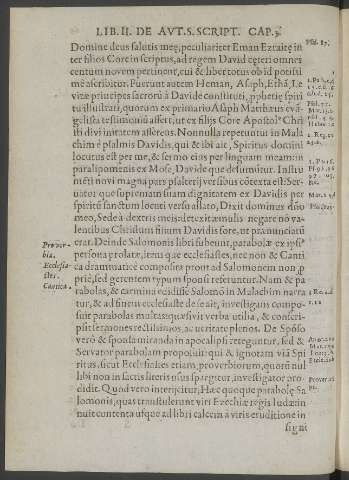 LIB. II. DE AVT. S. SCRIPT. CAP. 3.
Domine deus salutis meę, peculiariter Eman Ezraitę in
ter filios Core in scriptus, ad regem David cęteri omnes
centum novem pertinent, cui & libertotus ob id potissi
mè ascribitur. Fuerunt autem Heman, Asaph, Ethã, Le
vitæ principes sacrorũ à Davide constituti, pphetię spiri
tu illustrati, quorum ex primario Asaph Matthæus evã-
gelista testimoniũ assert, ut ex filijs Core Apostol' Chri
sti divinitatem asserens. Nonnulla repetuntur in Mala
chim è psalmis Davidis, qui & ibi ait, Spiritus domini
locutus est per me, & sermo eius per linguam meam: in
paralipomenis ex Mose, Davide que desumitur. Instru
mẽti novi magna pars psalterij versibus cõtexta est: Ser-
vator que supremam suam dignitatem ex Davidis per
spiritũ sanctum locuti versu assato, Dixit dominus dño
meo, Sede à dextris meis: detexit æmulis negare nõ va-
lentibus Christum filium Davidis fore, ut pronunciatũ
erat. Deinde Salomonis libri subeunt, parabolæ ex ipsi'
persona prolatæ, item que ecclesiastes, nec non & Canti
ca drammaticè composita pront ad Salomonem non p
priè, sed gerentem typum sponsi referuntur. Nam & pa
rabolas, & carmina edidisse Salomo in Malachim narra
tur, & ad finem ecclesiaste de se ait, investigans compo-
suit parabolas multas: quæsivit verba utilia, & conscri-
psit sermones rectissimos, ac veritate plenos. De Spõso
verò & sponsa miranda in apocalipsi reteguntur, sed &
Servator parabolam proposuit: qui & ignotam viã Spi
ritus, sicut Ecclesiastes etiam, proverbiorum, quotũ nul
libi non in sacris literis usus spargitur, investigator pro-
didit. Quod vero interijcitur, Hæ quoque parabolę Sa
lomonis, quas transtulerunt viri Ezechiæ regis Iudæ: in
nuit contenta usque ad libri calcem à viris eruditione in
signi
Prover-
bia.
Ecclesia-
stes.
Cantica.